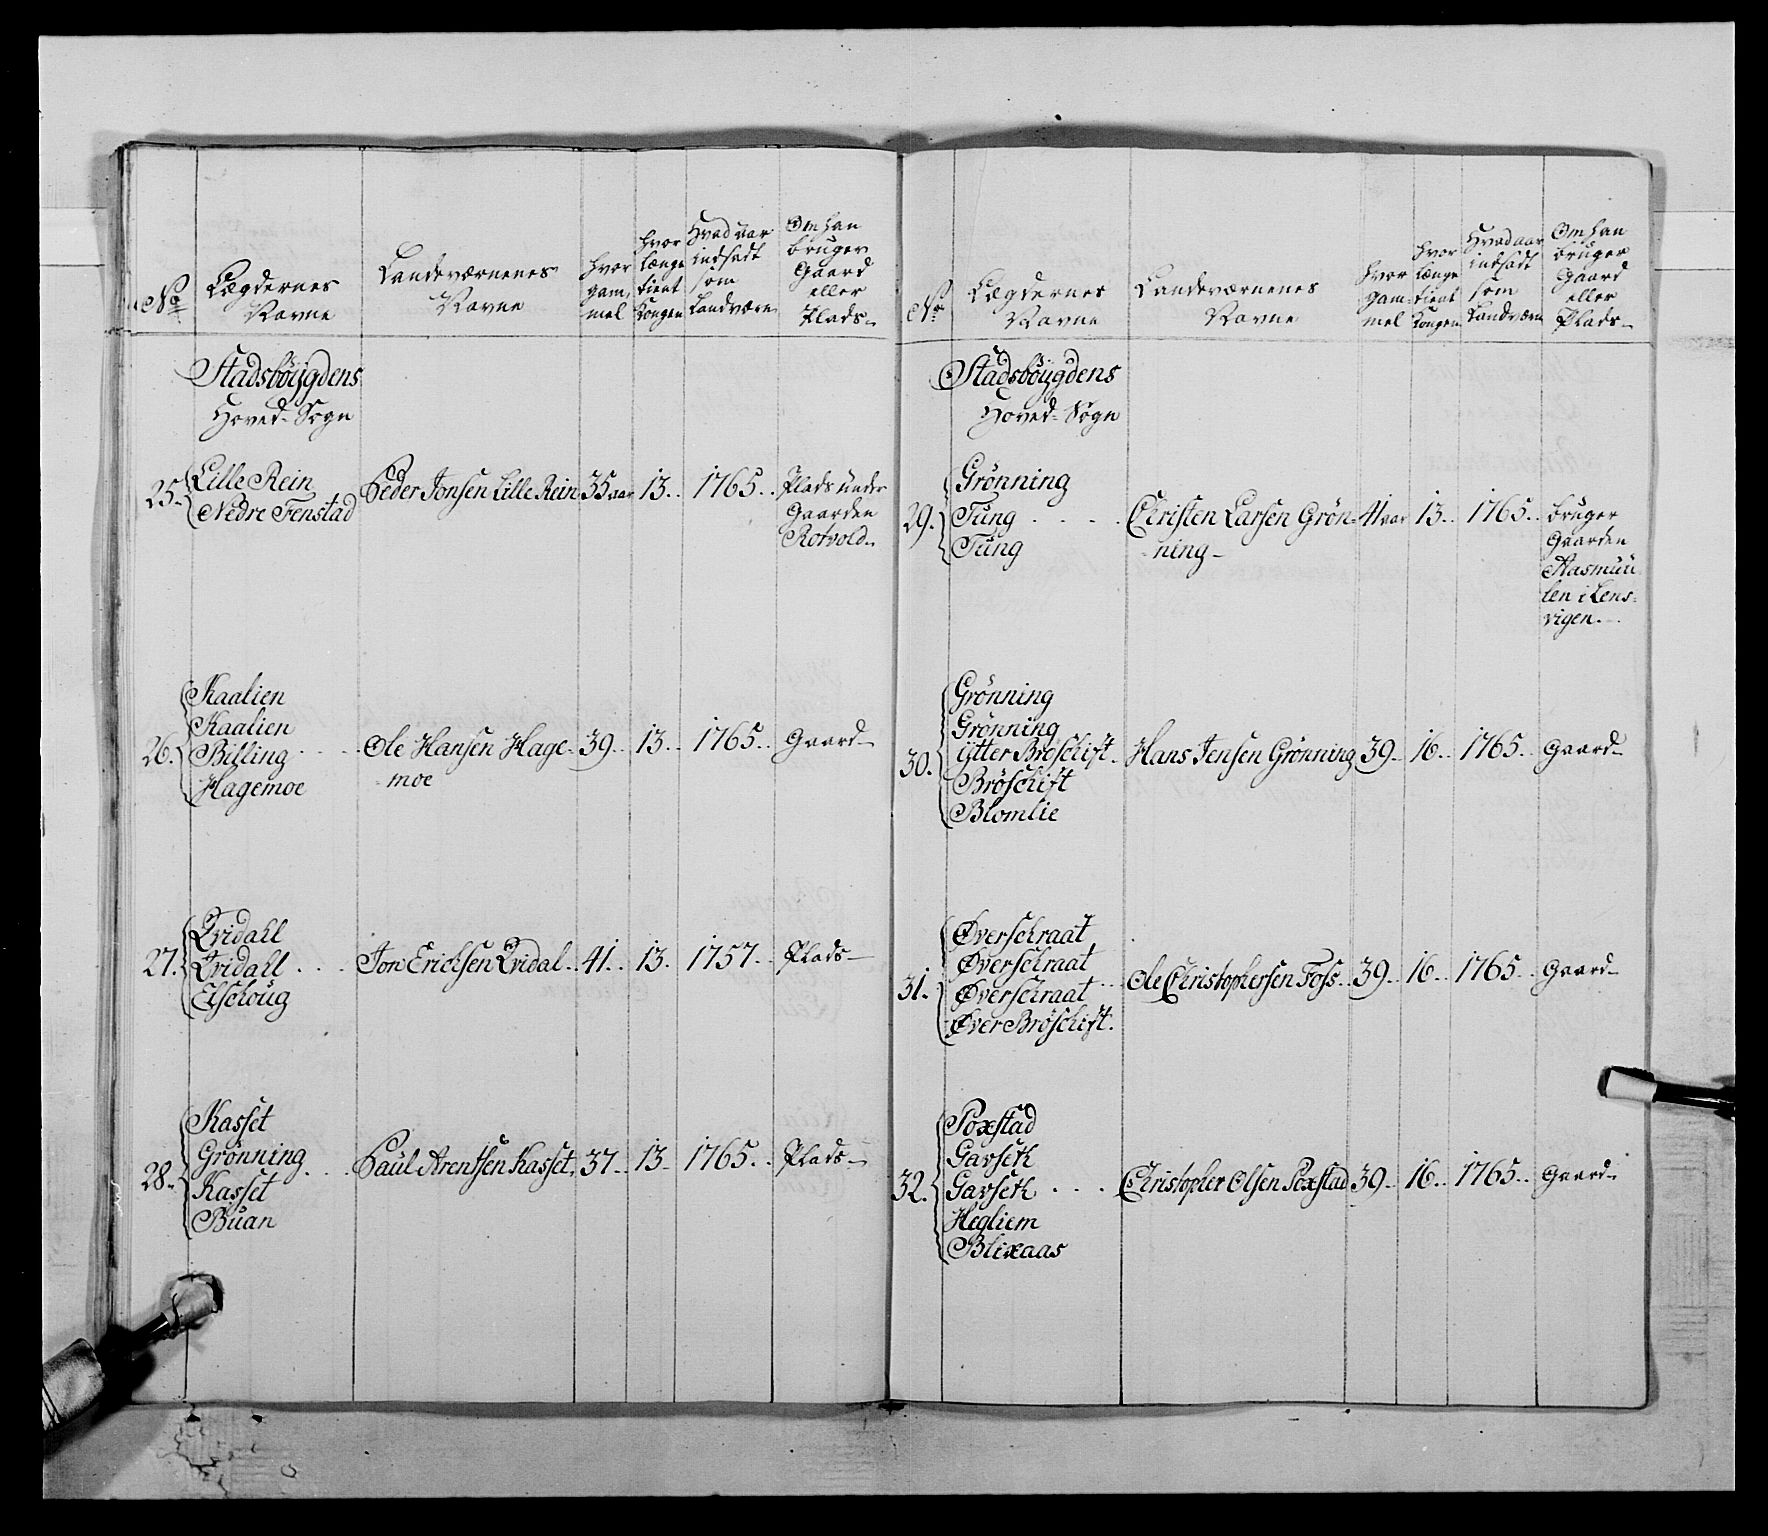 No
Lægdernes
Navne
Landeværnenes
Navne
hvor
gam,
mel
hvor
længe
tient
Kongen
Hvad aar
indsadt
som
Landværn
Om han
bruger
Gaard
eller
Plads-
Stadsböÿgdens
Hoved-Sogn
25. Lille Rein
Nedre Fenstad
Peder Jonsen Lille Rein 35 aar 13.. 1765.. Plads under
Gaarden
Rotvold-
26. Kaalien
Kaalien
Billing
Hagemoe
Ole Hansen Hage-
moe
39.. 13.. 1765.. Gaard-
27. Qvidahl
Qvidahl
Elschoug
Jon Erichsen Qvidal.. 41.. 13. 1757.. Plads-
28. Kasset
Grønning
Kasset
Buan
Paul Arentsen Kasset. 37.. 13.. 1765.. Plads-
No
Lægdernes
Navne
Landeværnenes
Navne
hvor
gam-
mel
hvor
længe
tient
Kongen
Hvad aar
indsadt
som
Landværn
Om han
bruger
Gaard
eller
Plads-
Stadsböÿgdens
Hoved-Sogn
29. Grønning
Tung
Tung
Christen Larsen Grön-
ning-
41 aar 13.. 1765.. bruger
Gaarden
Aasmuu
len i Lens-
vigen.
30. Grønning
Grønning
Ytter Bröschift
Bröschift
Blomlie
Hans Jensen Grønning 39.. 16.. 1765.. Gaard-
31. Øverschraat
Øverschraat
Øverschraat
Øver Bröschift.
Ole Christophersen Foss.. 39.. 16.. 1765.. Gaard-
32. Poxstad
Gavseth
Gavseth
Hegliem
Blixaas
Christopher Olsen Poxstad 39.. 16.. 1765.. Gaard-